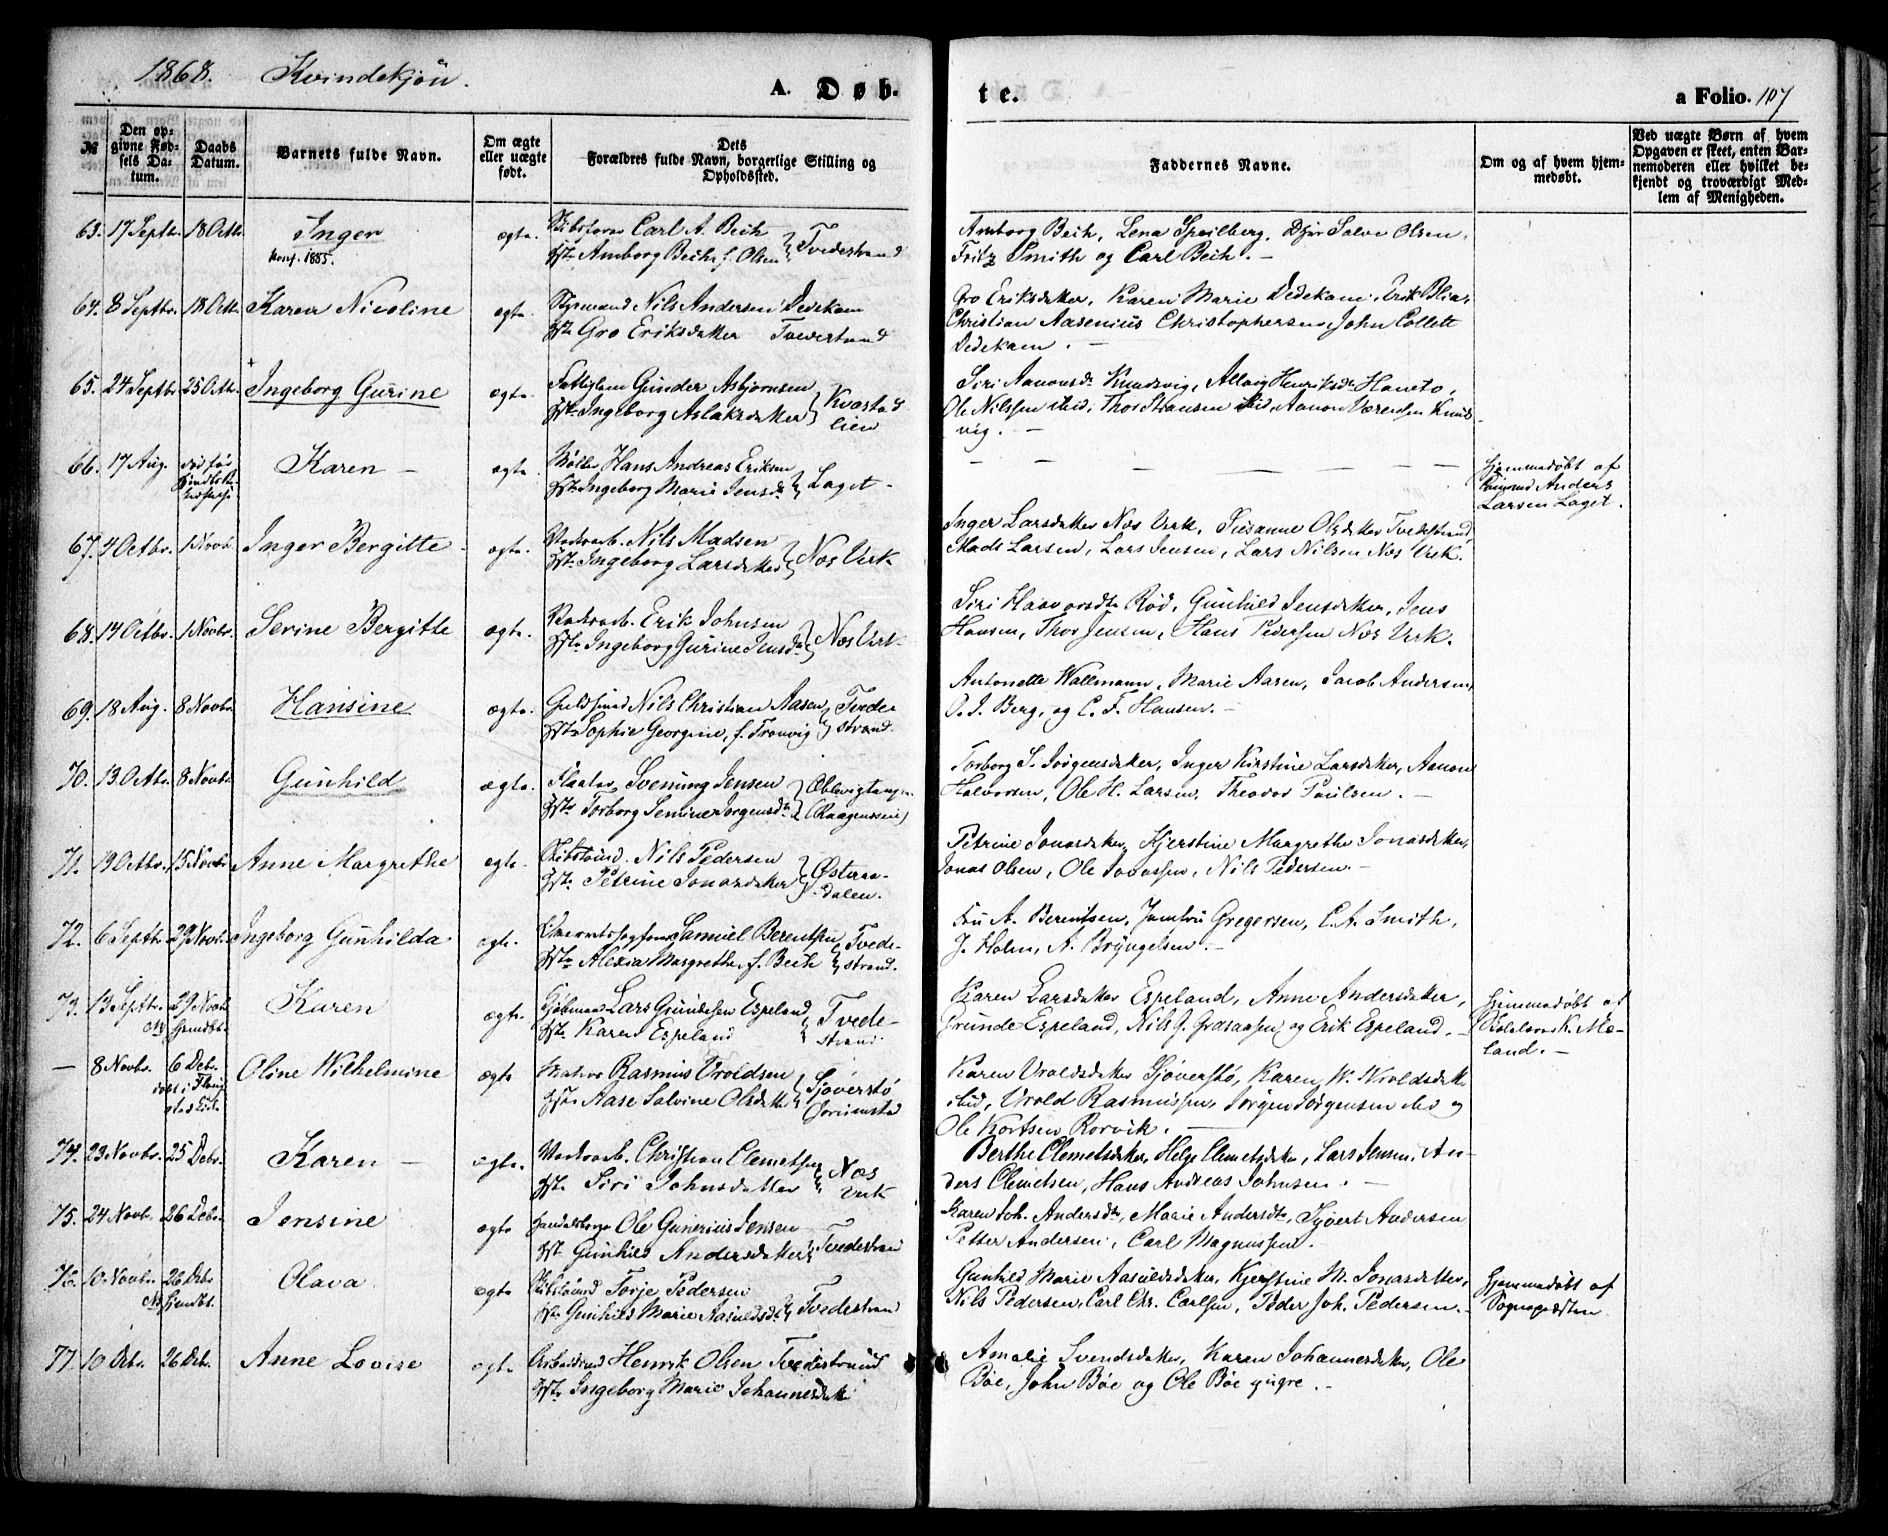 1868. Kvindekjön.
A. Døb.
te.
a Folio. 107
№
Den opgivne Fødsels Datum.
Daabs Datum.
Barnets fulde Navn.
Om ægte eller uægte født.
Dets Forældres fulde Navn, borgerlige Stilling og Opholdssted.
Faddernes Navne.
Om og af hvem hjemmedøbt.
Ved uægte Børn af hvem Opgaven er skeet, enten Barnemoderen eller hvilket bekjendt og troværdigt Medlem af Menigheden.
63. 17 Septbr. 18 Octbr. Inger ægte. Carl A. Beck
Konf. 1885. Amborg Beck f. Olsen Tvedestrand
Amborg Beck, Lena Speilberg, Salve Olsen,
Fritz Smith og Carl Beck. —
64. 8 Septbr. 18 Octbr. Karen Nicoline ægte. Styrmand Nils Andersen Dedekam
Hst. Gro Eriksdatter Tvedestrand
Gro Eriksdatter, Karen Marie Dedekam, Erik
Christian Aasenius Christophersen, John Collett
Dedekam. —
65. 24 Septbr. 25 Octbr. Ingeborg Gurine ægte. Gunder Asbjornsen
Hst. Ingeborg Aslaksdatter Kvastad
lien
Siri Aanonsdr. Knudsvig, Henriksdr. Haneto,
Ole Nilssen ibid, Aanon
vig. —
66. 17 Aug. død før Karen — ægte. Hans Andreas Eriksen
Hst. Ingeborg Marie Jensdr. Laget.
Hjemmedøbt af
Anders
Larsen Laget.
67. 4 Octbr. 1 Novbr. Inger Bergitte ægte. Nils Madsen
Hst. Ingeborg Larsdatter Næs Verk
Inger Larsdatter Næs Verk, Susanne Olsdatter Tvedestrand,
Mads Larsen, Lars Jensen, Lars Nilsen Næs Verk.
68. 14 Octbr. 1 Novbr. Serine Bergitte ægte. Erik Johnsen
Hst. Ingeborg Gurine Jensdr. Næs Verk
Siri Rød, Gunhild Jensdatter, Jens
Hansen, Thor Jensen, Hans Pedersen Næs Verk.
69. 18 Aug. 8 Novbr. Hansine ægte. Guldsmed Nils Christian Aasen Tvede
Hst. Sophie Georgine, f. Tronvig strand.
Antonette Wallmann, Marie Aaren, Jacob Andersen,
O. J. Berg, og C. F. Hansen. —
70. 13 Octbr. 8 Novbr. Gunhild ægte. Svenung Jensen
Hst. Torborg Jorgensdr.
Torborg S. Jörgensdatter, Inger Kirstine Larsdatter, Aanon
Halvorsen, Ole H. Larsen, Theodor Paulsen. —
71. 19 Octbr. 15 Novbr. Anne Margrethe ægte. Nils Pedersen
Hst. Petrine Jonasdatter Østeraa-
dalen.
Petrine Jonasdatter, Kjerstine Margrethe Jonasdatter,
Jonas Olsen, Ole Jonassen, Nils Pedersen. —
72. 6 Septbr. 29 Novbr. Ingeborg Gunhilda ægte. Samuel Berentsen Tvede-
Hst. Alexia Margrethe, f. Beck strand.
Fru A. Berentsen, Jomfru Gregersen, C. A. Smith,
J. Holm, A. Bryngelsen. —
73. 13 Septbr. 29 Novbr. Karen ægte. Lars Grundesen Espeland Tvede-
Hst. Karen Espeland strand.
Karen Larsdatter Espeland, Anne Andersdatter,
Grunde Espeland, Nils G. og Erik Espeland. —
Hjemmedøbt af
K. Mæ-
land. —
— 8 Novbr. 6 Debr. Oline Wilhelmine ægte Rasmus Vroldsen Sjöverstö
Hst. Aase Salvine Olsdatter
Karen Vroldsdatter Sjöverstö, Karen W. Vroldsdatter
ibid, Vrold Rasmussen, Jörgen Jörgensen ibid og
Ole Kortsen Rorvik. —
74. 23 Novbr. 25 Debr. Karen — ægte. Christian Clemetsen Næs
Hst. Siri Johnsdatter Verk
Berthe Clemetsdatter, Helge Clemetsdatter, Lars Jensen, An-
ders Clemetsen, Hans Andreas Johnsen. —
75. 24 Novb. 26 Debr. Jensine ægte Ole Gunerius Jensen
Hst. Gunhild Andersdatter Tvedestrand
Karen Joh. Andersdr., Marie Andersdr., Sjövert Andersen
Petter Andersen, Carl Magnussen. —
76. 10 Novbr. 26 Debr. Olava ægte Torje Pedersen
Hst. Gunhild Marie Aasuldsdr. Tvedestrand
Gunhild Marie Aasuldsdatter, Kjerstine M. Jonasdatter,
Nils Pedersen, Carl Chr. Carlsen, Peder Joh. Pedersen.
Hjemmedøbt af
Sognepræsten.
77. 10 Debr. 26 Debr. Anne Lovise ægte Henrik Olsen Tvedestrand
Hst. Ingeborg Marie Johannesdatter
Amalie Svendsdatter, Karen Johannesdatter, Ole
Böe, John Böe og Ole Böe yngre. —